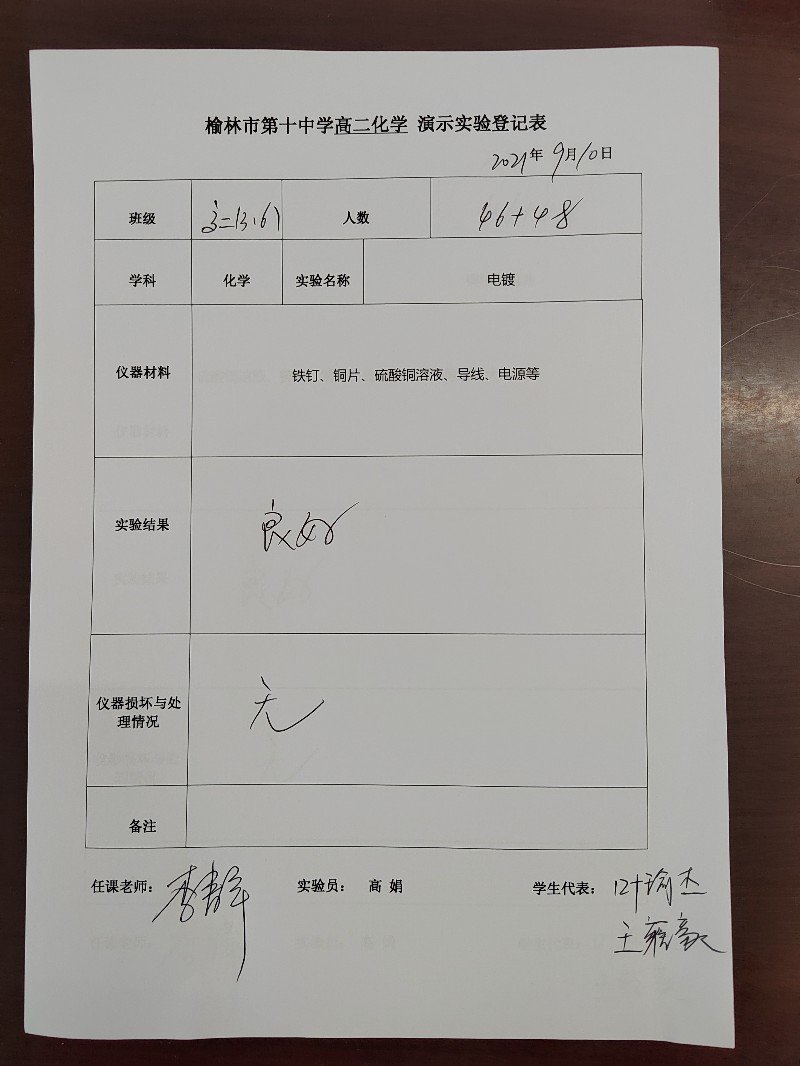 榆林市第十中学高二化学 演示实验登记表
2021年 9月10日
班级 高二(3、6) 人数 46+48
学科 化学 实验名称 电镀
仪器材料 铁钉、铜片、硫酸铜溶液、导线、电源等
实验结果 良好
仪器损坏与处
理情况 无
备注
任课老师： 实验员： 高 娟 学生代表： 叶瑜杰
王